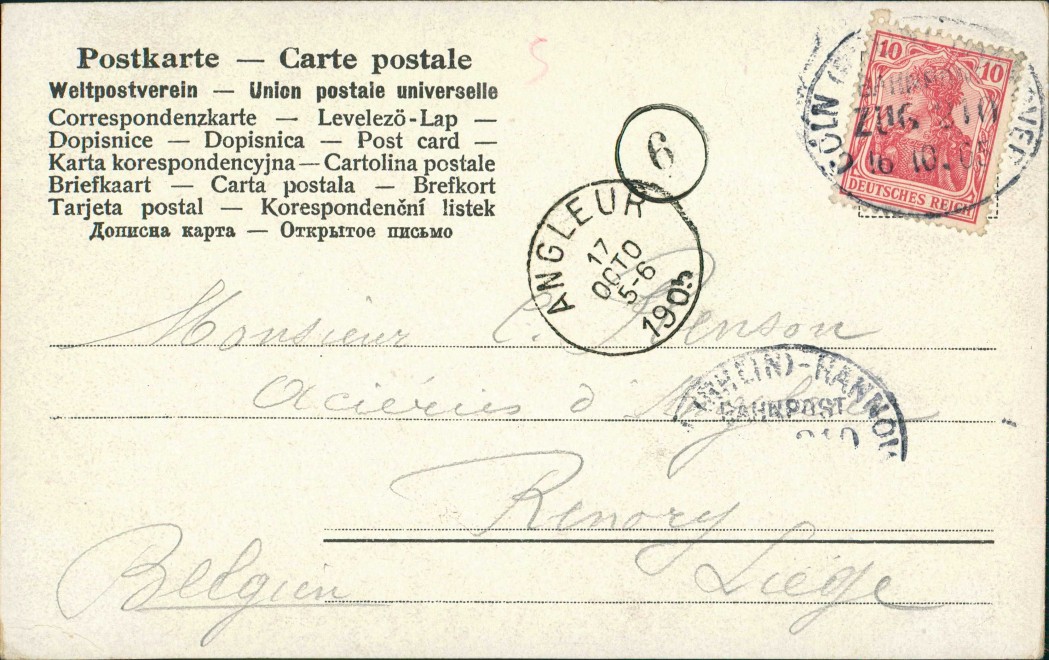 Postkarte — Carte postale
Weltpostverein — Union postale universelle
Correspondenzkarte — Levelezö-Lap —
Dopisnice — Dopisnica — Post card —
Karta korespondencyjna — Cartolina postale
Briefkaart — Carta postala — Brefkort
Tarjeta postal — Korespondenční listek
Дописна карта — Открытое письмо
5
6
10 10
DEUTSCHES REICH
CÖLN
BAHNPOST
ZUG
16 10
ANGLEUR
17
OCTO
5-6
1905
Monsieur C.
(RHEIN)-HANNOV
BAHNPOST
Aciéries d'Angleur
Renory
Liége
Belgien